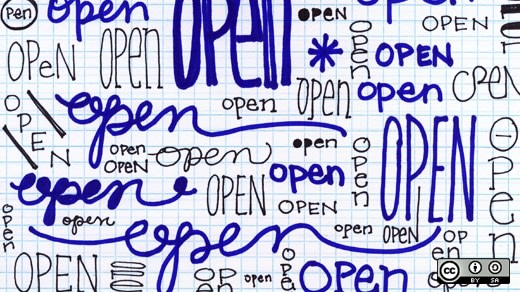 Pen
open
OPEN
OPEN
OPEN
OPeN
open
open
OPEN
OPEN
open
open
open
open
OPEN
open
open
OPEN
open
open
open
open
OPEN
open
OPEN
OPEN
open
OPEN
open
open
open
open
OPEN
OPEN
open
open
open
cc
BY SA